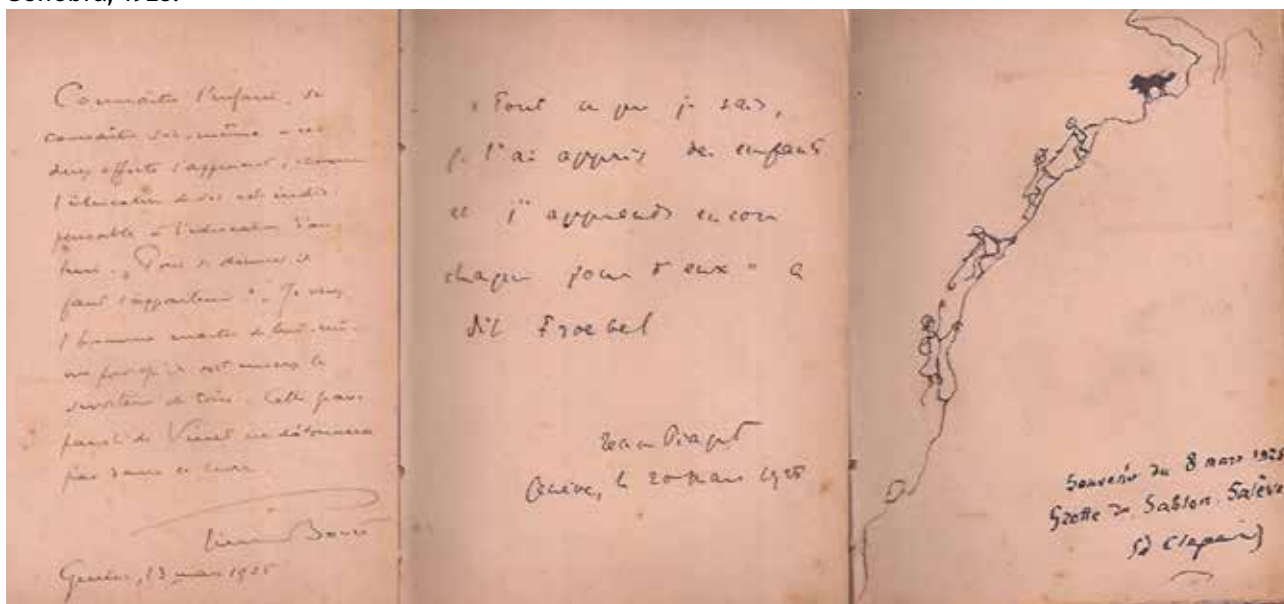 Genebra, 1928.
Connaître l'enfant, se
connaître soi-même – ces
deux efforts s'appuient, comme
l'éducation de soi est indis-
pensable à l'éducation d'au-
trui. "Pour se donner il
faut s'appartenir". "Je veux
l'homme maître de lui-mê-
me afin qu'il soit mieux le
serviteur de tous". Cette
pensée de Vinet ne
pas dans ce livre.
Pierre Bovet
Genève, 13 mars 1928
« Tout ce que je sais,
je l'ai appris des enfants
et j'apprends encore
chaque jour d'eux " a
dit Froebel
Jean Piaget
Genève, le 20 mars 1928
Souvenir du 8 mars 1928
Grotte du Sablon. Salève
Ed Claparède